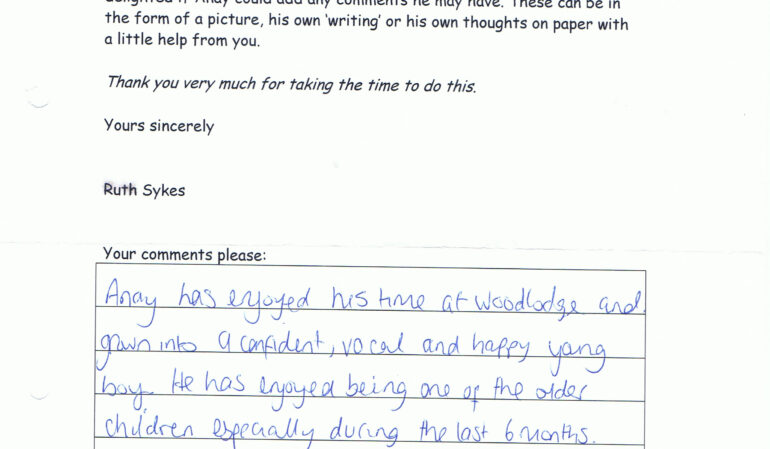 delighted if Anay could add any comments he may have. These can be in
the form of a picture, his own 'writing' or his own thoughts on paper with
a little help from you.
Thank you very much for taking the time to do this.
Yours sincerely
Ruth Sykes
Your comments please:
Anay has enjoyed his time at Woodlodge and
grown into a confident, vocal and happy young
boy. He has enjoyed being one of the older
children especially during the last 6 months.